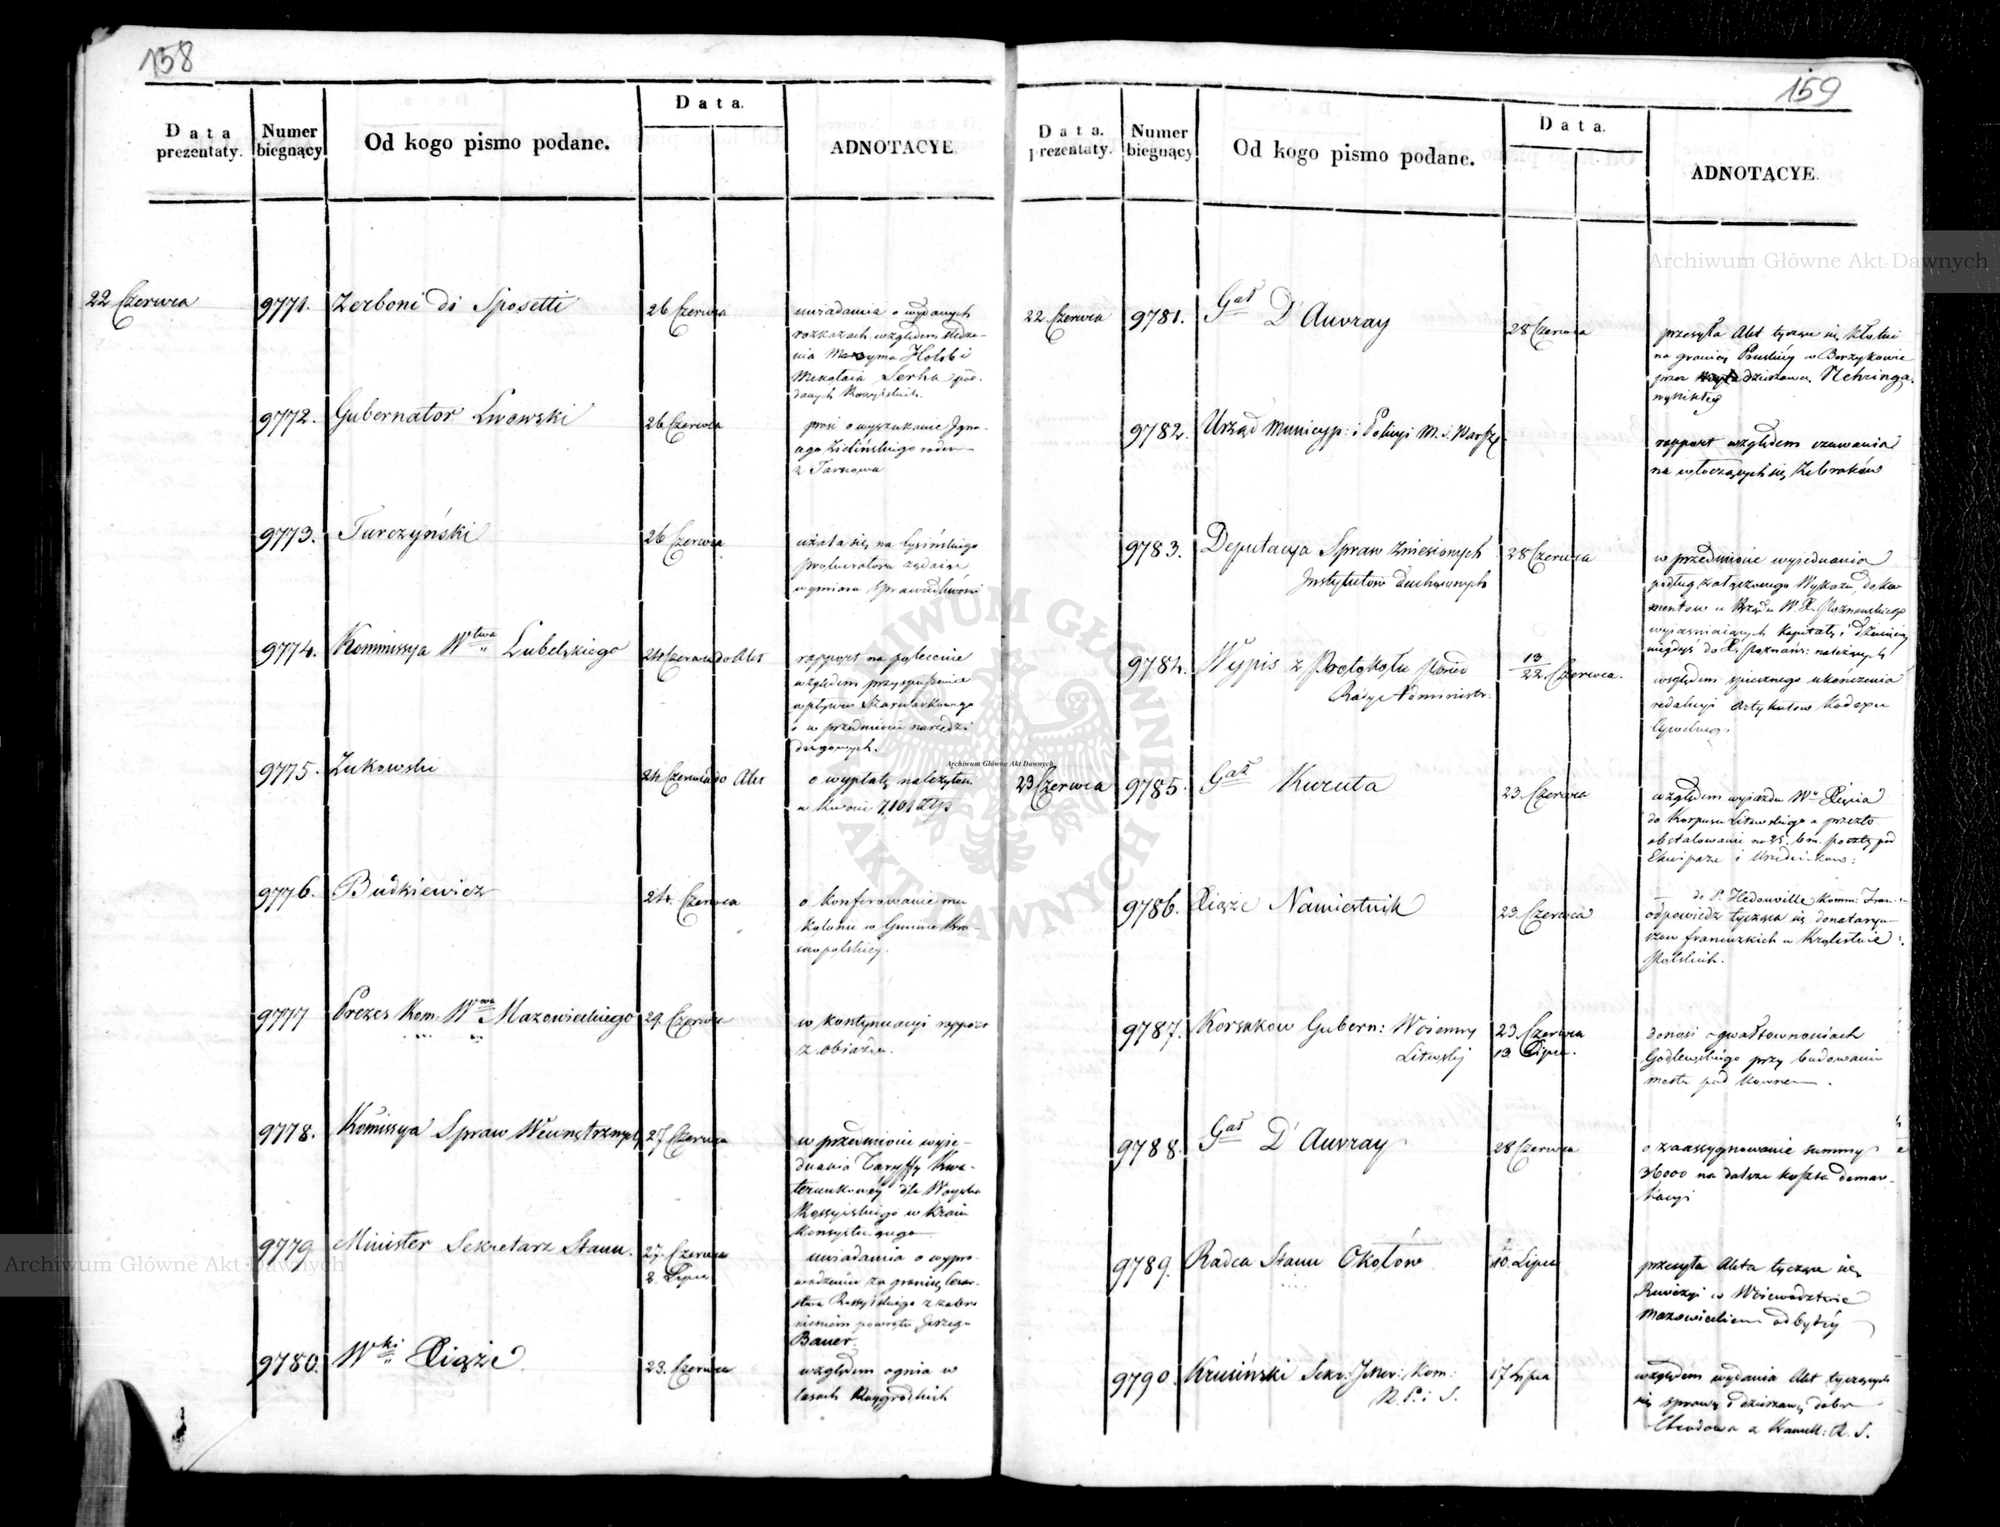 158
Data prezentaty.
Numer biegnący
Od kogo pismo podane.
Data.
ADNOTACYE
22 Czerwca
9771.
Zerboni di Sposetti
26 Czerwca
uwiadamia o wydanych
rozkazach względem śledze-
nia Maxyma Holub i
Mikołaia Serha pod-
danych Rossyiskich.
9772.
Gubernator Lwowski
26 Czerwca
prosi o wyszukanie Igna-
cego Zielińskiego rodem
z Tarnowa
9773.
Turczyński
26 Czerwca
użala się na Łysińskiego
prokuratora żądaiąc
wymiaru sprawiedliwości
9774.
Kommissya Wtwa Lubelskiego
24 Czerwca do Akt
rapport na polecenie
względem przyspieszenia
wpływu Szarwarkowego
i w przedmiocie narzędzi
drogowych.
9775.
Zukowski
24 Czerwca do Akt
o wypłatę należytości
w kwocie 7,101 Złp
9776.
Budkiewicz
24 Czerwca
o konferowanie mu
kolonii w Gminie
9777
Prezes Kom: Wwa Mazowieckiego
29. Czerwca
w kontynuacyi rapport
z obiazdu.
9778.
Komissya Spraw Wewnętrznych
27 Czerwca
w przedmiocie wyie-
dnania Taryffy Kwa-
terunkowéy dla Woyska
Rossyiskiego w Kraiu
konsystuiącego
9779
Minister Sekretarz Stanu.
27. Czerwca
2. Lipca
uwiadamia o wypro-
wadzeniu za granicę Cesar-
stwa Rossyiskiego z zabro-
nieniem powrotu Jerzego
Bauer.
9780.
Wki Xiąże
23. Czerwca
względem ognia w
lasach Raygrodzkich
159
Data. prezentaty.
Numer biegnący
Od kogo pismo podane.
Data.
ADNOTACYE
22. Czerwca
9781.
Gał D'Auvray
28 Czerwca
przesyła Akt tyczące się kłótni
na granicy Pruskiéy w Borzykowie
przez dzierżawcę Nehringa
wynikłéy
9782.
Urząd Municyp: i Policyi M. S. Warszy.
rapport względem czuwania
na włóczących się Żebraków
9783.
Deputacya Spraw Zniesionych
Instytutów duchownych
28 Czerwca
w przedmiocie wyiednania
podług załączonego Wykazu, doku-
mentów u Rządu W. X. Poznańskiego
wyiaśniaiących kapitały i dziesięciny
niegdyś do X. Poznań: należących
9784.
Wypis z Protokołu Posied
Rady Administr.
13
22. Czerwca.
względem spiesznego ukończenia
redakcyi Artykułów Kodexu
Cywilnego
23 Czerwca
9785.
Gał Kuruta
23. Czerwca
względem wyiazdu Wo Xięcia
do Korpusu Litewskiego a przeto
obstalowanie na 25. b.m. poczty pod
Ekwipaże i Urzędników:
9786.
Xiąże Namiestnik
23. Czerwca
do P. Hedouville Komm: Fran-
odpowiedź tycząca się donataryu-
szów francuzkich w Królestwie
Polskich.
9787.
Korsakow Gubern: Woienny
Litewski
23. Czerwca
13. Lipca.
donosi o gwałtownościach
Godlewskiego przy budowaniu
mostu pod Kownem.
9788.
Gał D'Auvray
28 Czerwca
o zaassygnowanie summy
36000 na dalsze koszta demar-
kacyi
9789.
Radca Stanu Okołów
10. Lipca
przesyła Akta tyczące się
Rewizyi w Woiewództwie
Mazowieckiem odbytéy
9790.
Krusiński Sekr: Kom:
R. P. i S.
17 Lipca
względem wydania Akt tyczących
się sprawy o dzierżawę dobr
z Komm: R. S.
Archiwum Główne Akt Dawnych
Archiwum Główne Akt Dawnych
Archiwum Główne Akt Dawnych
ARCHIWUM GŁÓWNE AKT DAWNYCH